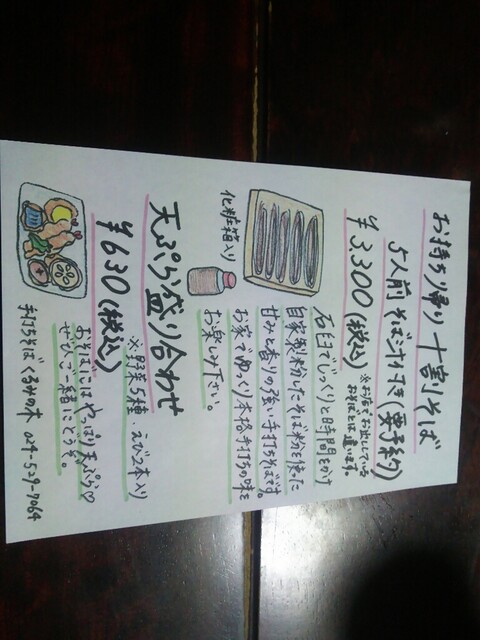 お持ち帰り 十割そば
5人前 そば汁付き(要予約)
¥3,300(税込)
※お店でお出ししている
おそばとは違います。
化粧箱入り
石臼でじっくりと時間をかけ
自家製粉したそば粉を使った
甘みと香りの強い手打ちそばです。
お家でゆっくり本格手打ちの味を
お楽しみ下さい。
天ぷら盛り合わせ
¥630(税込)
※野菜5種・えび2本入り
おそばにはやっぱり天ぷら♡
ぜひご一緒にどうぞ。
手打ちそば くるみの木 024-529-7064